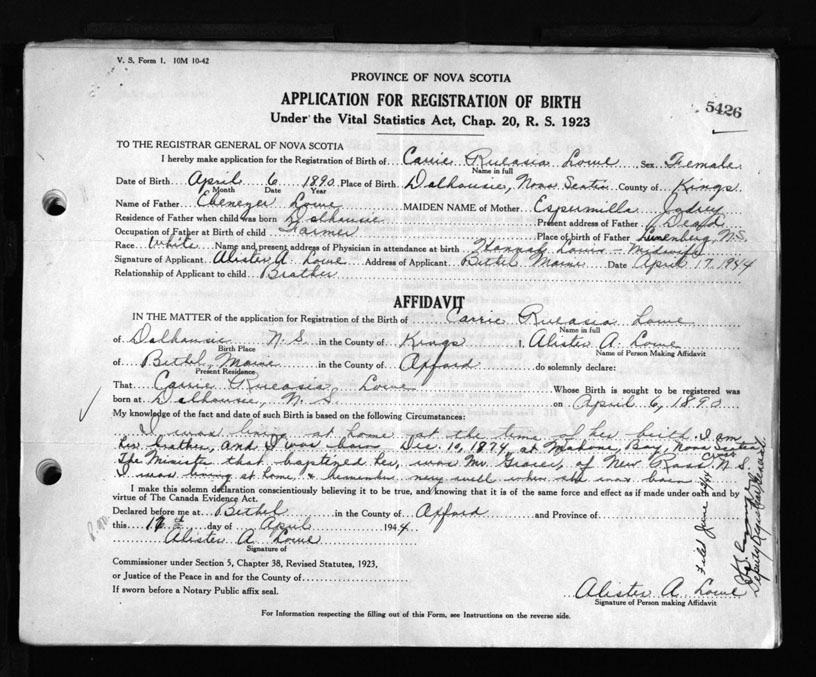 V. S. Form 1. 10M 10-42
PROVINCE OF NOVA SCOTIA
APPLICATION FOR REGISTRATION OF BIRTH
5426
Under the Vital Statistics Act, Chap. 20, R. S. 1923
TO THE REGISTRAR GENERAL OF NOVA SCOTIA
I hereby make application for the Registration of Birth of Carrie Rueasia Lowe Sex Female
Name in full
Date of Birth April 6 1890 Place of Birth Dalhousie, Nova Scotia County of Kings
Month Date Year
Name of Father Ebenezer Lowe MAIDEN NAME of Mother Espermilla
Residence of Father when child was born Dalhousie Present address of Father Dead
Occupation of Father at Birth of child Farmer Place of birth of Father Lunenberg N.S.
Race White Name and present address of Physician in attendance at birth Hannah Midwife
Signature of Applicant Alister A. Lowe Address of Applicant Bethel Maine Date April 17 1944
Relationship of Applicant to child Brother
AFFIDAVIT
IN THE MATTER of the application for Registration of the Birth of Carrie Rueasia Lowe
Name in full
of Dalhousie N.S. in the County of Kings I, Alister A. Lowe
Birth Place Name of Person Making Affidavit
of Bethel, Maine in the County of Oxford do solemnly declare:
Present Residence
That Carrie Rueasia Lowe Whose Birth is sought to be registered was
born at Dalhousie, N. S. on April 6, 1890
My knowledge of the fact and date of such Birth is based on the following Circumstances:
I was living at home at the time of her birth. I am
her brother, and I was born Dec. 10, 1874, at Mahone Bay, Nova Scotia
The Minister that baptized her, was Mr. of New Ross, N.S.
I was living at home, & remember very well when she was born
I make this solemn declaration conscientiously believing it to be true, and knowing that it is of the same force and effect as if made under oath and by
virtue of The Canada Evidence Act.
Declared before me at Bethel in the County of Oxford and Province of
this 17th day of April 1944
Alister A Lowe
Signature of
Commissioner under Section 5, Chapter 38, Revised Statutes, 1923,
or Justice of the Peace in and for the County of
If sworn before a Notary Public affix seal.
Alister A. Lowe
Signature of Person making Affidavit
Filed June
Deputy Registrar General.
For Information respecting the filling out of this Form, see Instructions on the reverse side.